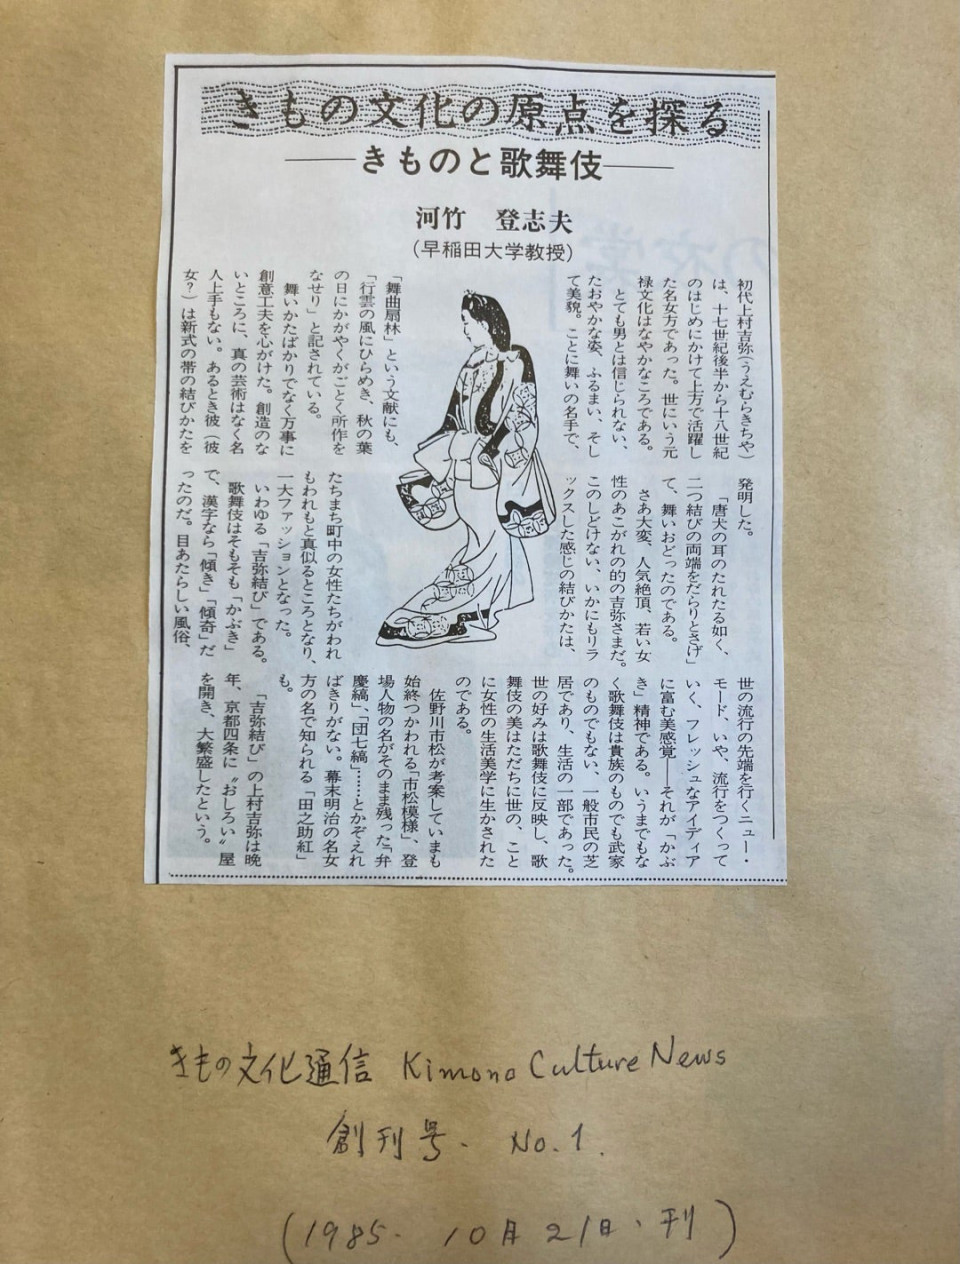 きもの文化の原点を探る
──きものと歌舞伎──
河竹　登志夫
（早稲田大学教授）
初代上村吉弥（うえむらきちや）
は、十七世紀後半から十八世紀
のはじめにかけて上方で活躍し
た名女方であった。世にいう元
禄文化はなやかなころである。
とても男とは信じられない、
たおやかな姿、ふるまい、そし
て美貌。ことに舞いの名手で、
「舞曲扇林」という文献にも、
「行雲の風にひらめき、秋の葉
の日にかがやくがごとく所作を
なせり」と記されている。
舞いかたばかりでなく万事に
創意工夫を心がけた。創造のな
いところに、真の芸術はなく名
人上手もない。あるとき彼（彼
女？）は新式の帯の結びかたを
発明した。
「唐犬の耳のたれたる如く、
二つ結びの両端をだらりとさげ」
て、舞いおどったのである。
さあ大変、人気絶頂、若い女
性のあこがれの的の吉弥さまだ。
このしどけない、いかにもリラ
ックスした感じの結びかたは、
たちまち町中の女性たちがわれ
もわれもと真似るところとなり、
一大ファッションとなった。
いわゆる「吉弥結び」である。
歌舞伎はそもそも「かぶき」
で、漢字なら「傾き」「傾奇」だ
ったのだ。目あたらしい風俗、
世の流行の先端を行くニュー・
モード、いや、流行をつくって
いく、フレッシュなアイディア
に富む美感覚──それが「かぶ
き」精神である。いうまでもな
く歌舞伎は貴族のものでも武家
のものでもない、一般市民の芝
居であり、生活の一部であった。
世の好みは歌舞伎に反映し、歌
舞伎の美はただちに世の、こと
に女性の生活美学に生かされた
のである。
佐野川市松が考案していまも
始終つかわれる「市松模様」、登
場人物の名がそのまま残った「弁
慶縞」、「団七縞」……とかぞえれ
ばきりがない。幕末明治の名女
方の名で知られる「田之助紅」
も。
「吉弥結び」の上村吉弥は晩
年、京都四条に〝おしろい〟屋
を開き、大繁盛したという。
きもの文化通信 Kimono Culture News
創刊号. No.1.
(1985. 10月21日、刊)